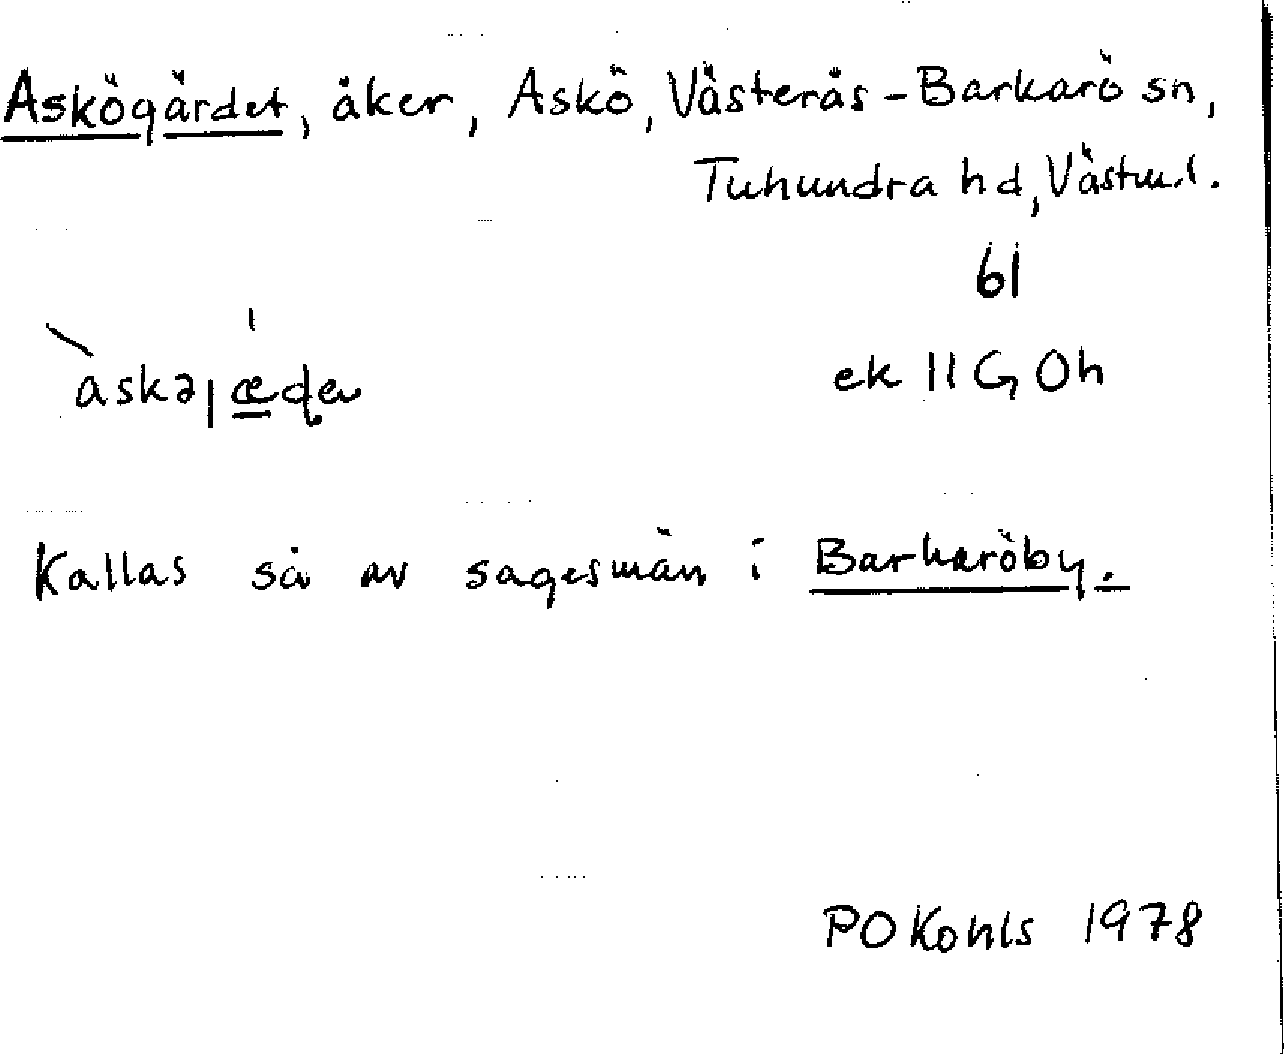 Askögärdet, åker, Askö, Västerås-Barkarö sn,
Tuhundra hd, Västml.
61
ek 11G 0h
Kallas så av sagesmän i Barkaröby.
PO Kohls 1978